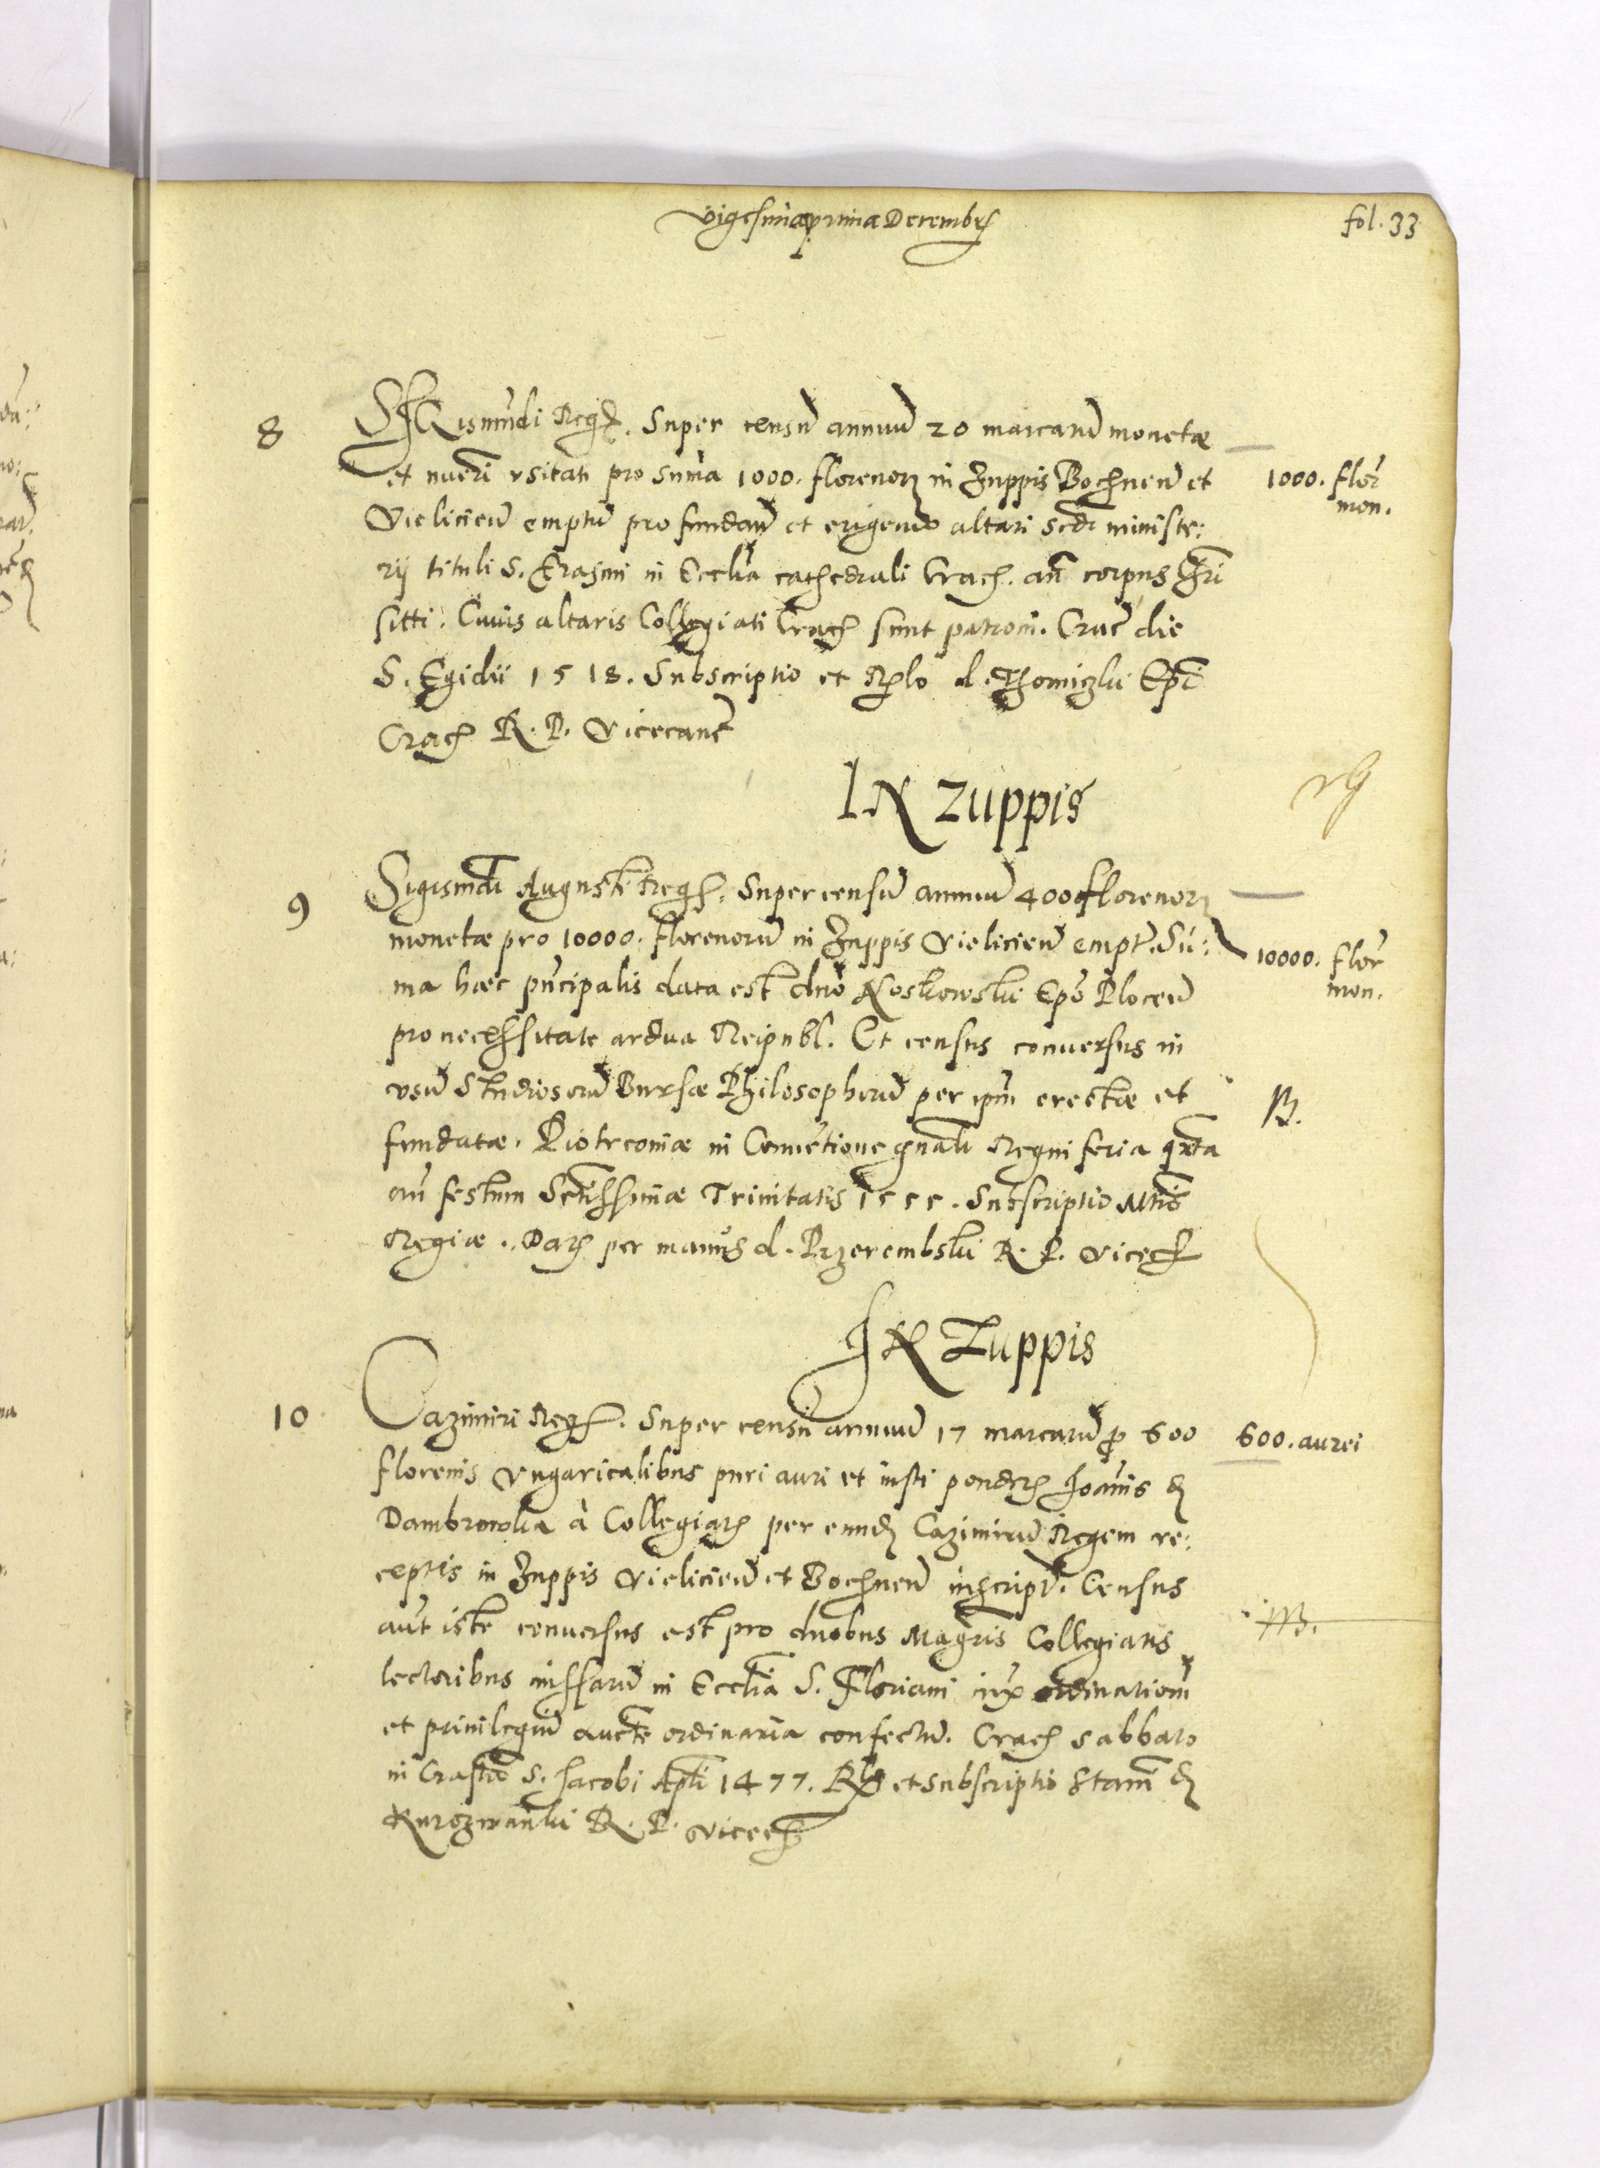 Vigesimaprima Decembr
fol. 33
8 SIGismūdi Reg. Super censū annuū 20 marcarū monetæ
et nūeri vsitati pro sūma 1000. florenorꝫ in Zuppis Bochnen̄ et
1000. flor̄
mon.
Vielicien̄ emptū pro fundan̄ et erigendo altari scdi ministe:
rij tituli S. Erasmi in Eccl̄ia cathedrali Crac̄. an̄ corpus Chrī
sitti. Cuius altaris Collegiati Crac̄ sunt patroni. Crac̄ die
S. Egidii 1518. Subscriptio et Rel̄o d. Thomiczki Ep̄i
Crac̄ R. P. Vicecanc̄
IN Zuppis
9 Sigismūdi Augusti Reg. Super censū annuū 400 florenorꝫ
monetæ pro 10000. florenorū in Zuppis Vielicien̄ empt. Sū:
10000. flor̄
mon.
ma hæc pn̄cipalis data est dn̄o Noskowski Ep̄o Plocen̄
pro necessitate ardua Reipubl. Et census conuersus in
vsū Studiosorū Bursæ Philosophorū per ip̄m erectæ et
B.
fundatæ. Piotrconiæ in Conuētione gn̄ali Regni feria qr̄ta
an̄ festum Sctissimæ Trinitatis 1555. Subscriptio Mtis
Regiæ. Dat per manus d. Przerembski R. P. Vice
IN Zuppis
10 Cazimiri Reg. Super censū annuū 17 marcarū ꝓ 600
600. aurei
florenis Vngaricalibus puri auri et iusti ponderis Joānis d
Dambrowka à Collegiatis per eund Cazimirū Regem re:
ceptis in Zuppis Vielicien̄ et Bochnen̄ inscript. Census
aūt iste conuersus est pro duobus Magr̄is Collegiatis
lectoribus missarū in Eccl̄ia S. Floriani iux ordinationē
et priuilegiū aucte ordinaria confectū. Crac̄ sabbato
in Crastino S. Jacobi Apl̄i 1477. Rel̄o et subscriptio Stani d
Kurozwanki R. P. Vice